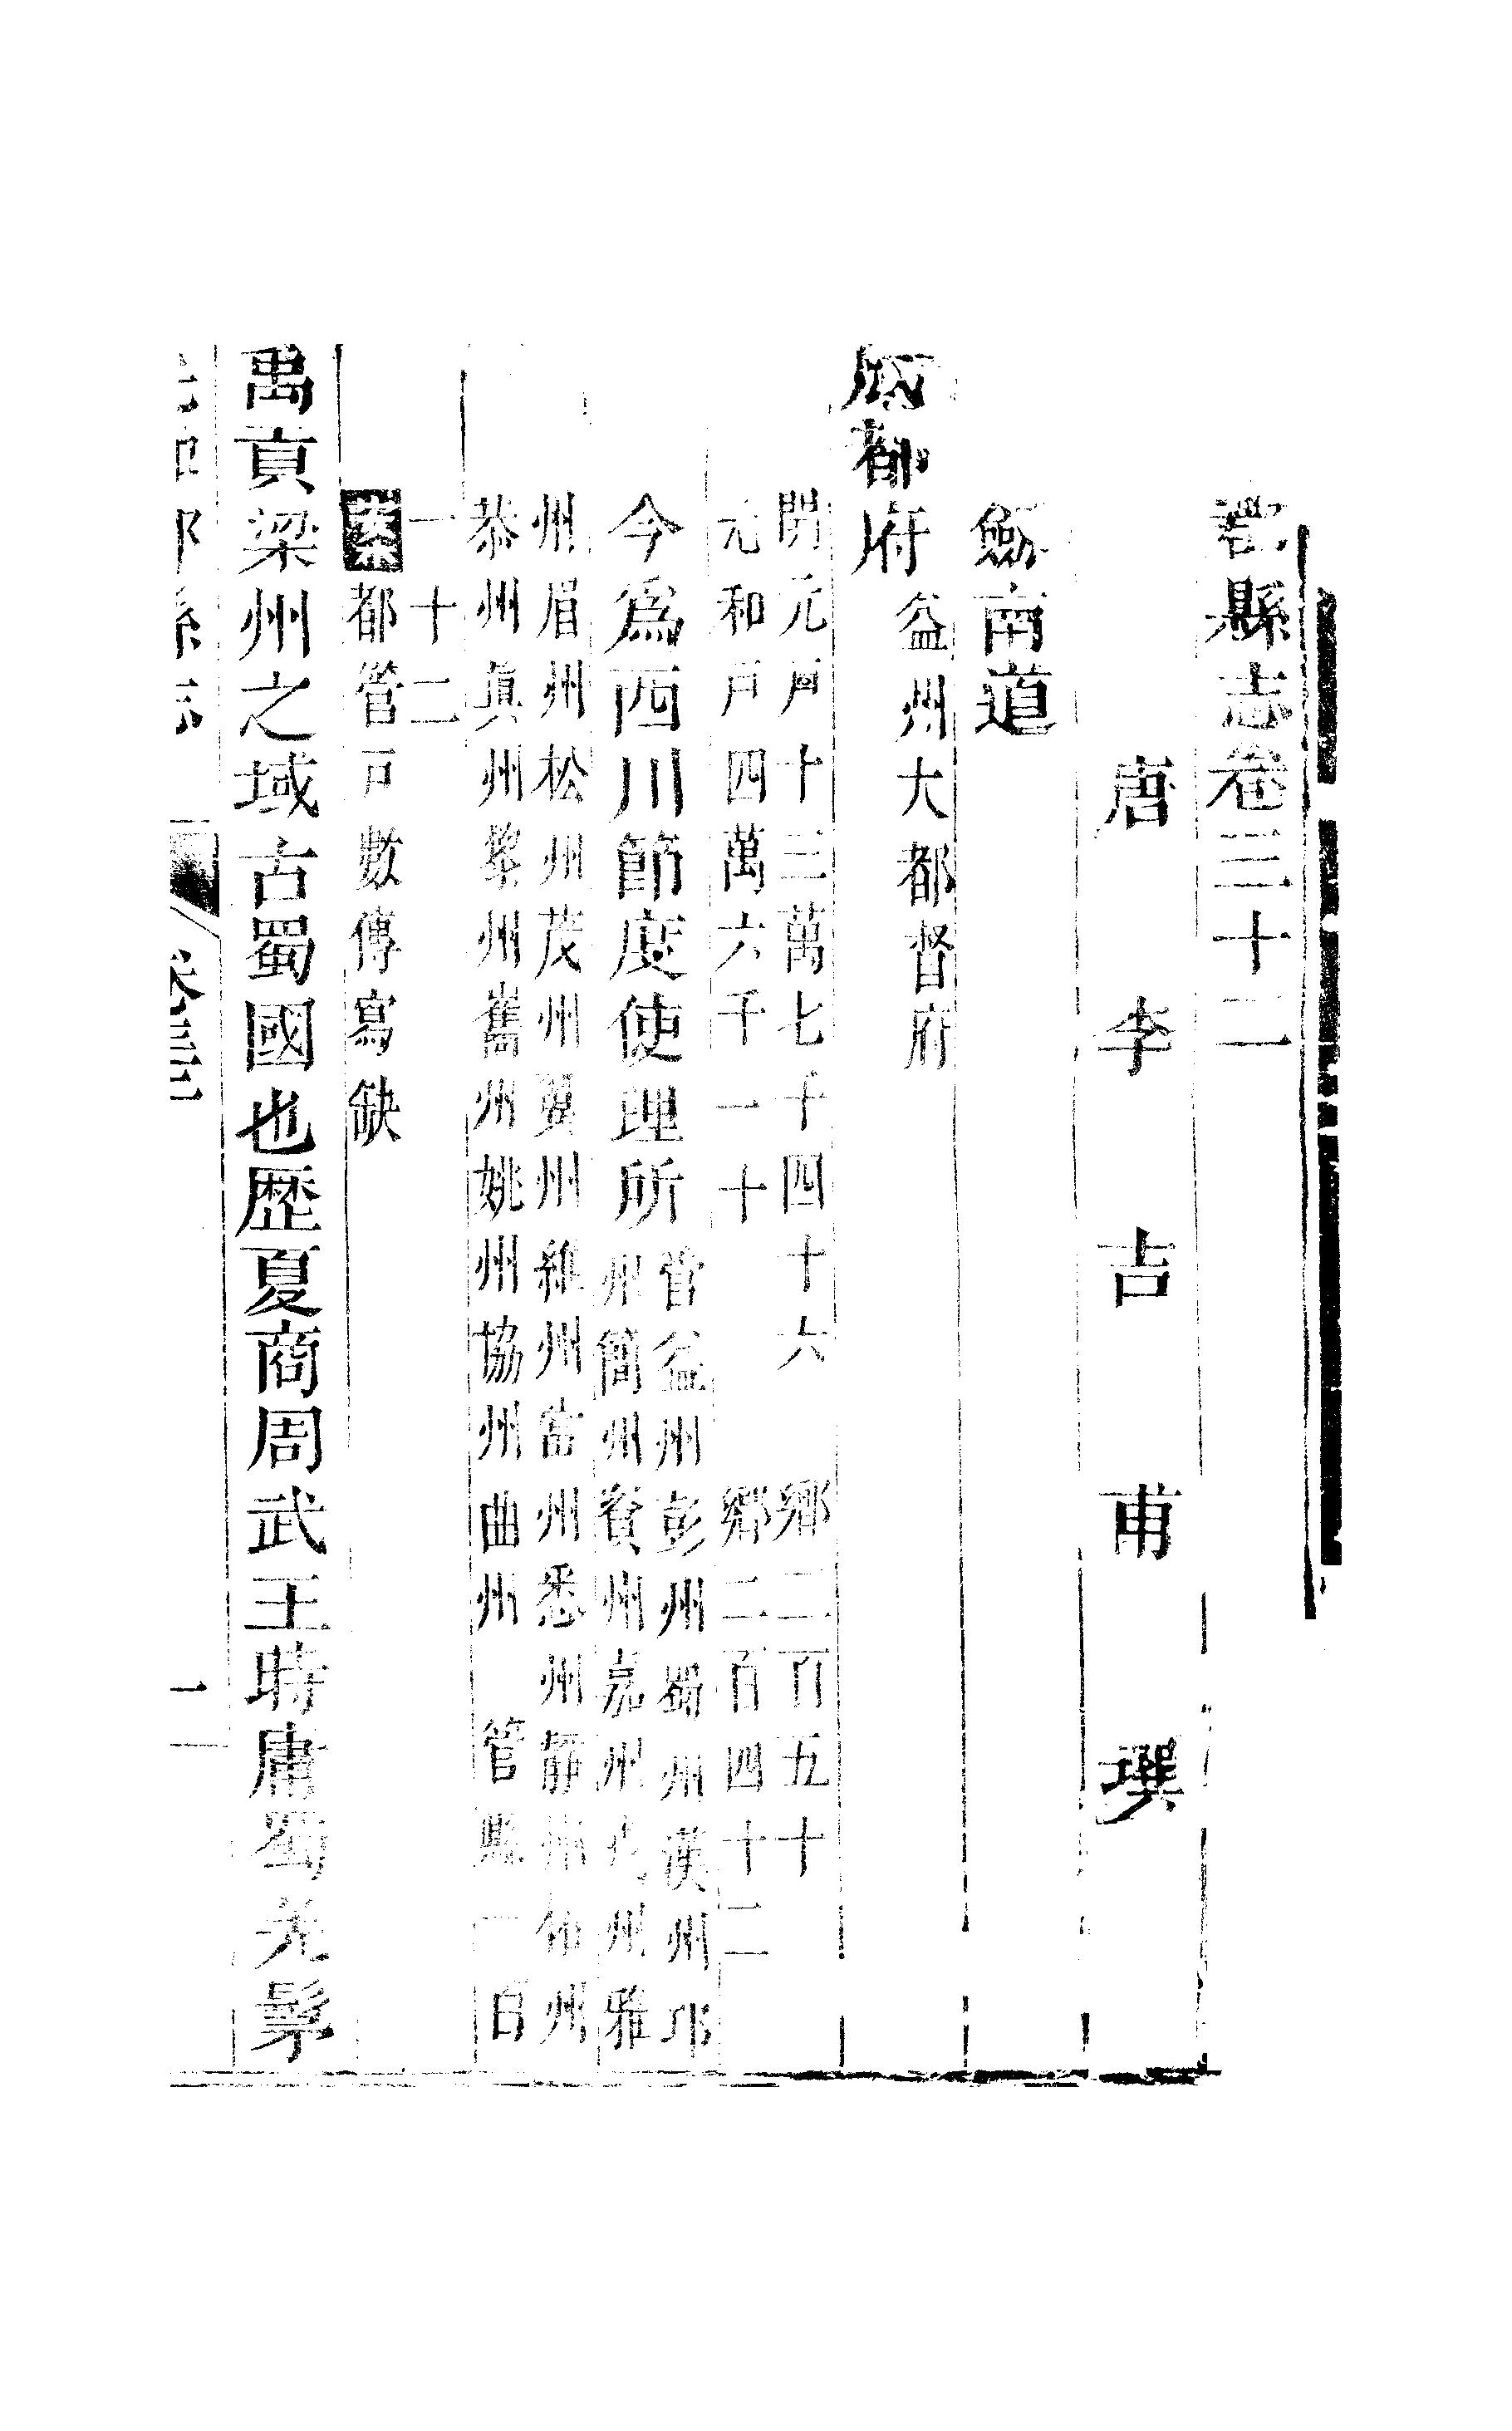 縣志卷三十二
唐李吉甫撰
劔南道
成都府益州大都督府
開元戸十三萬七千四十六　鄉二百五十
元和戸四萬六千一十　鄉二百四十二
今爲西川節度使理所管益州彭州蜀州漢州邛
州簡州資州嘉州戎州雅
州眉州松州茂州翼州維州當州悉州靜州柘州
恭州眞州黎州巂州姚州協州曲州　管縣一百
一十二
案都管戸數傳寫缺
禹貢梁州之域古蜀國也歷夏商周武王時庸蜀羌髳
卷三十二
一